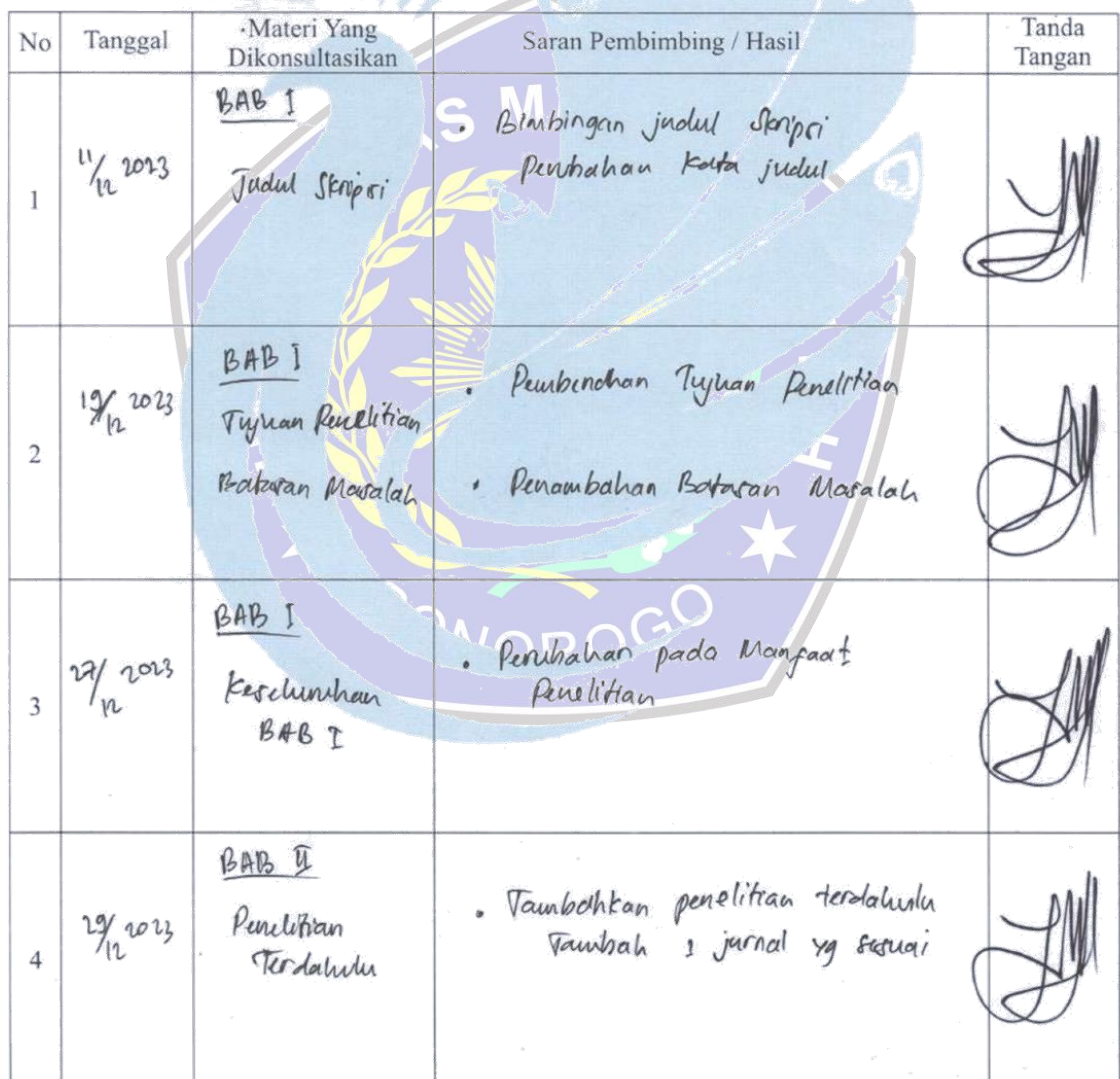 No Tanggal Materi Yang Dikonsultasikan Saran Pembimbing / Hasil Tanda Tangan
1
11/12 2023
BAB I
Judul Skripsi
• Bimbingan judul Skripsi
Perubahan Kata judul
2
19/12 2023
BAB I
Tujuan Penelitian
Batasan Masalah
• Pembenahan Tujuan Penelitian
• Penambahan Batasan Masalah
3
27/12 2023
BAB I
Keseluruhan
BAB I
• Perubahan pada Manfaat
Penelitian
4
29/12 2023
BAB II
Penelitian
Terdahulu
• Tambahkan penelitian terdahulu
Tambah 1 jurnal yg sesuai
PONOROGO